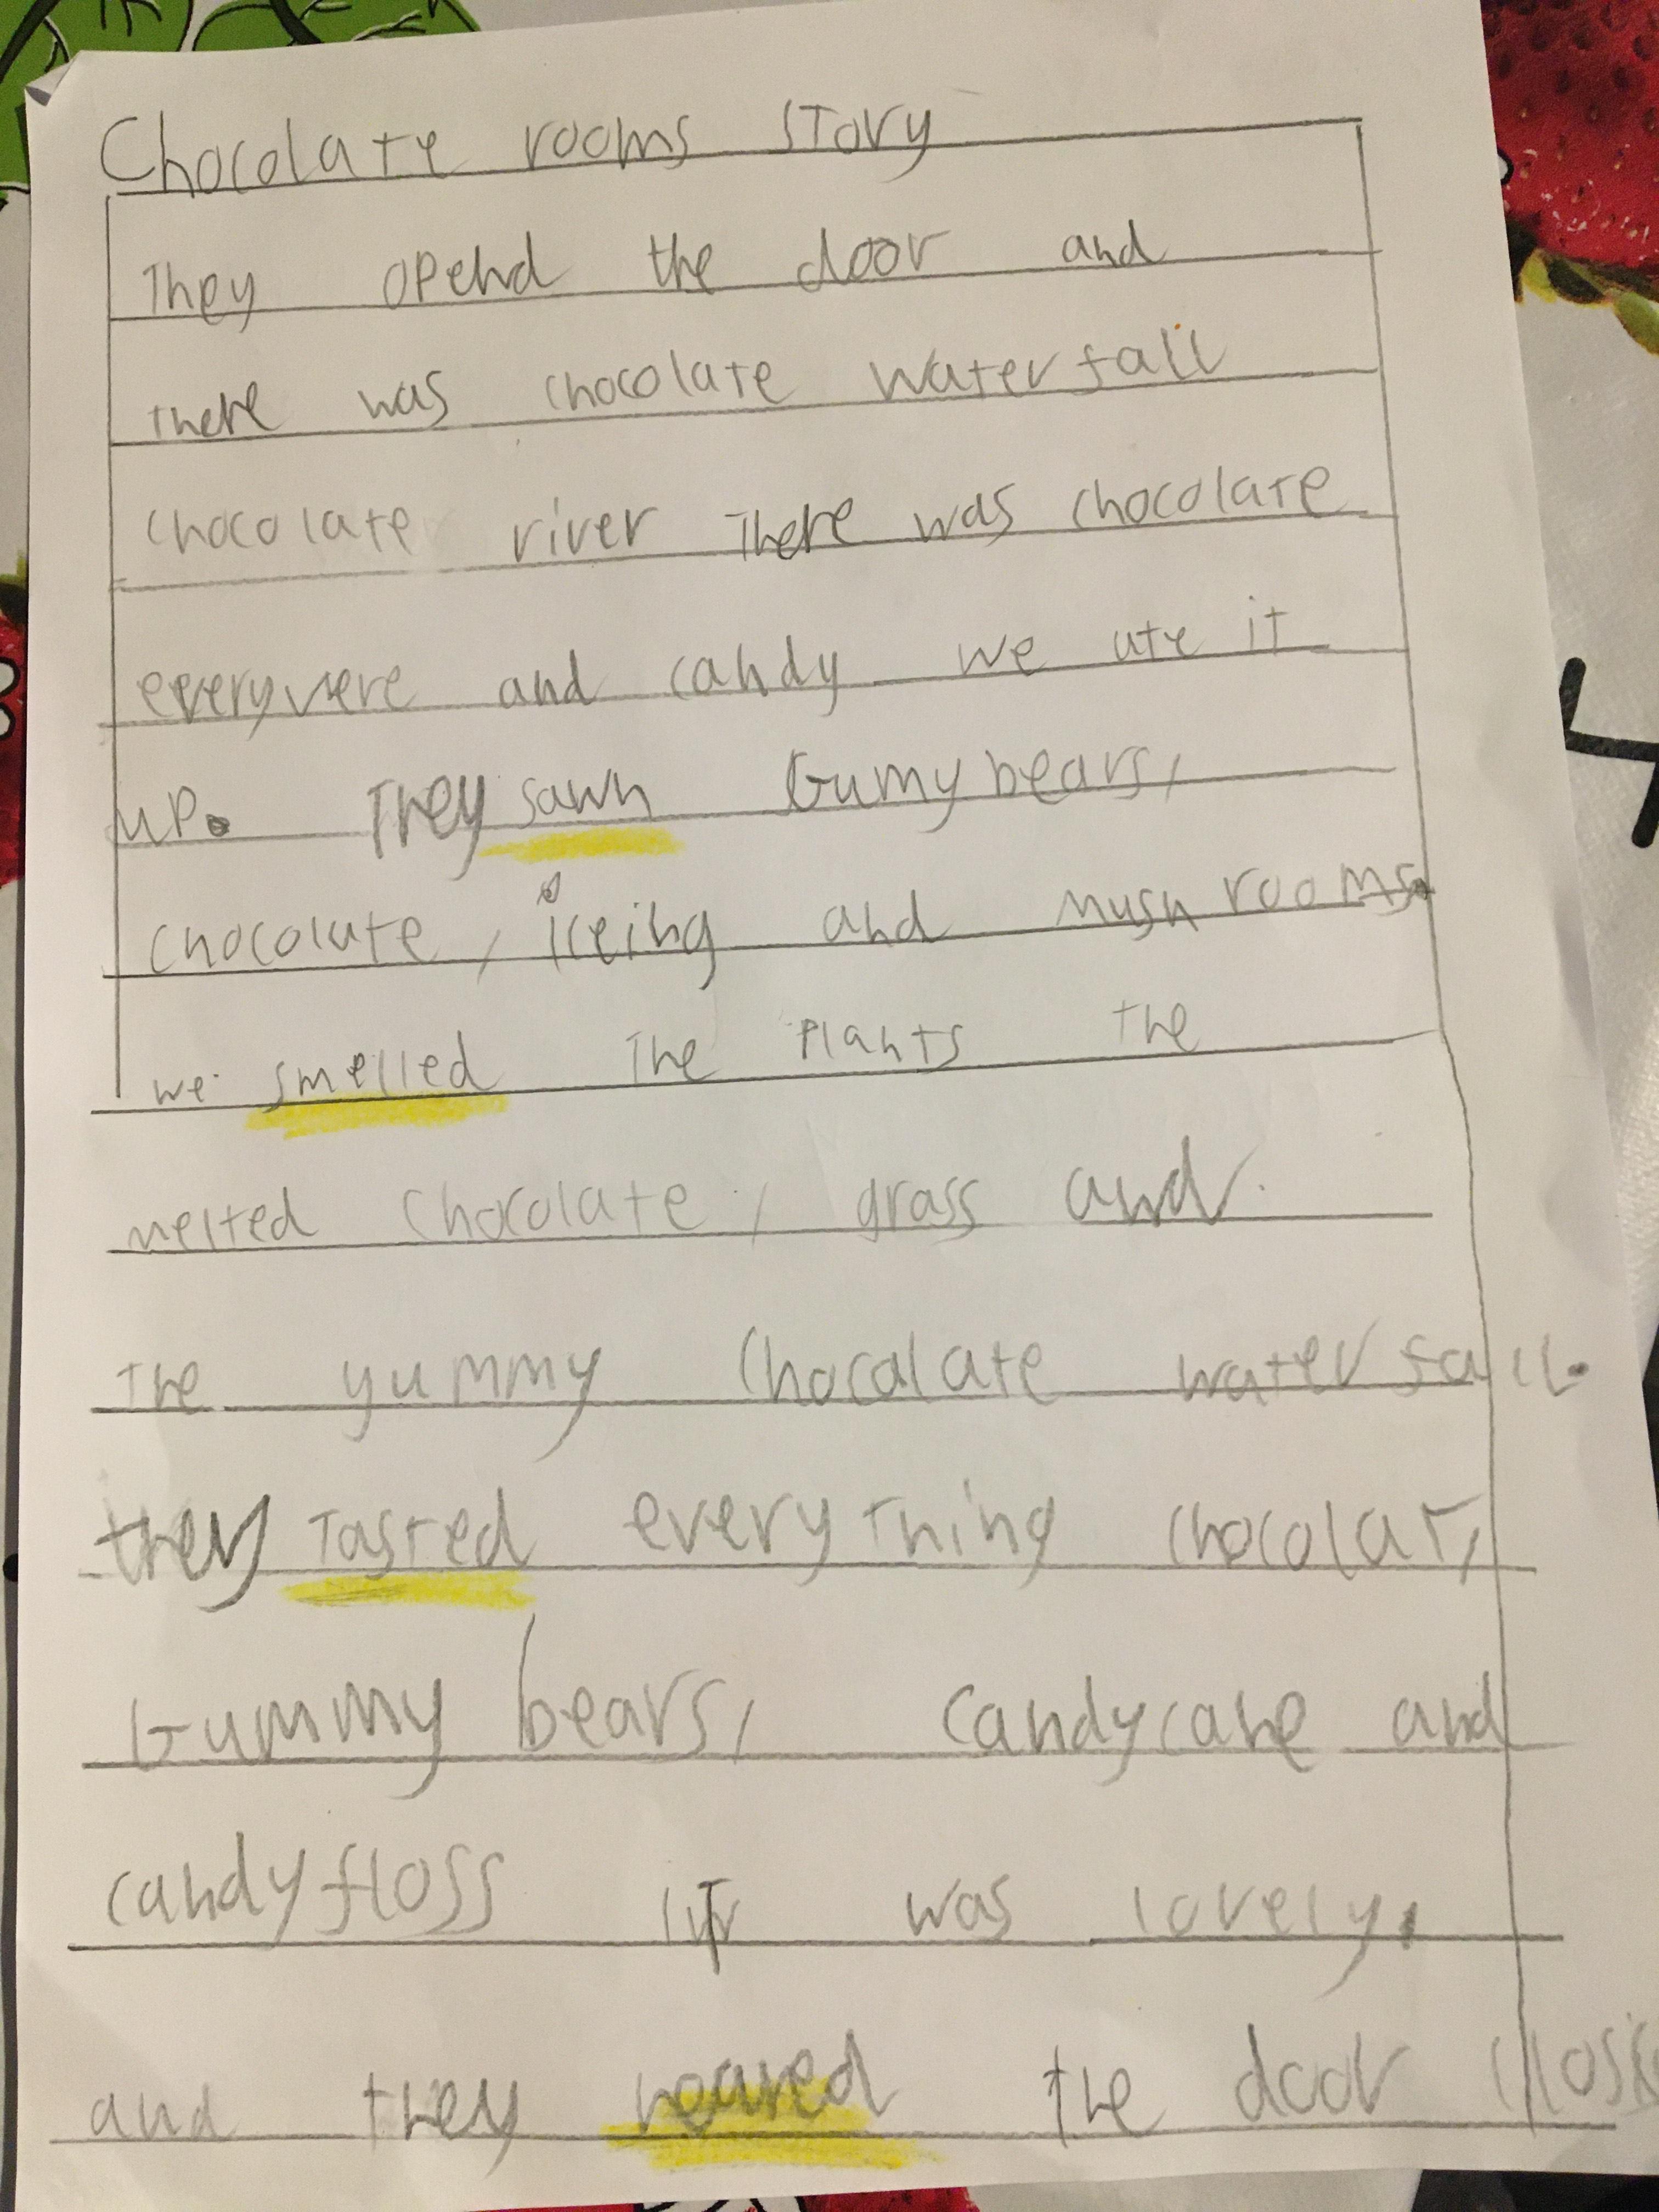 Chocolate rooms story
They opend the door and
there was chocolate waterfall
chocolate river There was chocolate
everyvere and candy we ate it
up. They sawh Gumybears,
chocolate, iceing and mushrooms.
we smelled the plants the
melted chocolate, grass and
the yummy chocalate waterfall.
they tasted everything chocolat,
Gummy bears, candycane and
candyfloss it was lovely,
and they heared the door